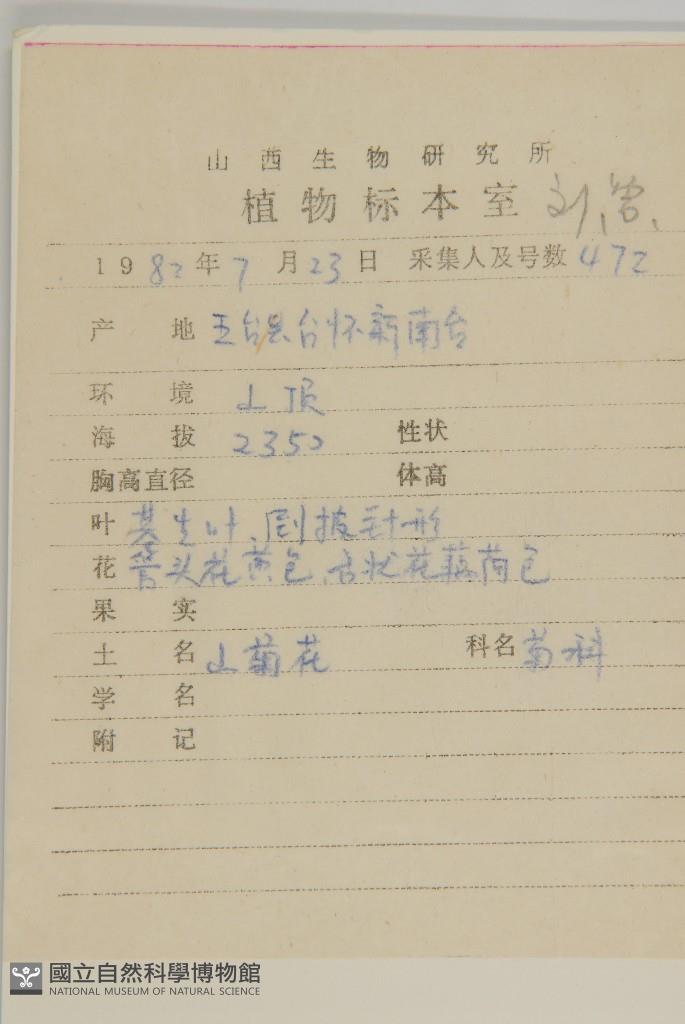 山西生物研究所
植物标本室 刘
1982年7月23日 采集人及号数 472
产地 五台县台怀新南台
环境 山顶
海拔 2350 性状
胸高直径 体高
叶 茎生叶、倒披针形
花 头花黄色、舌状花藕荷色
果实
土名 山菊花 科名 菊科
学名
附记
國立自然科學博物館
NATIONAL MUSEUM OF NATURAL SCIENCE